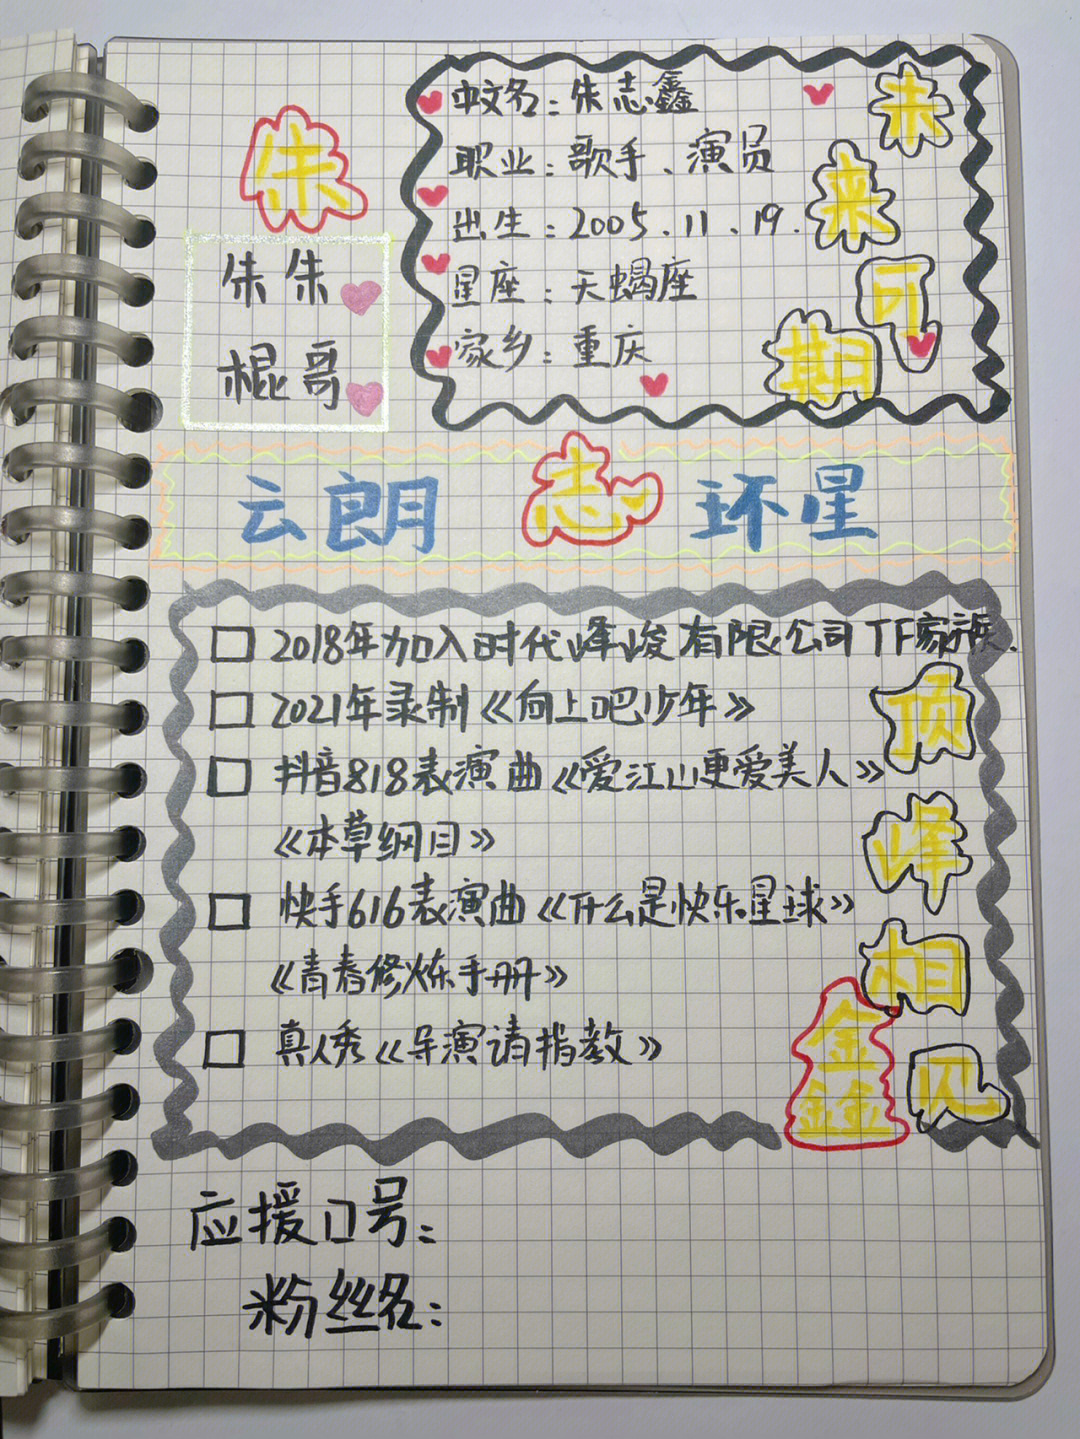 朱
朱朱
棍哥
中文名：朱志鑫
职业：歌手、演员
出生：2005.11.19.
星座：天蝎座
家乡：重庆
未来可期
云朗 志 环星
2018年加入时代峰峻有限公司TF家族.
2021年录制《向上吧少年》
抖音818表演曲《爱江山更爱美人》
《本草纲目》
快手616表演曲《什么是快乐星球》
《青春修炼手册》
真人秀《导演请指教》
顶峰相见
鑫
应援口号：
粉丝名：